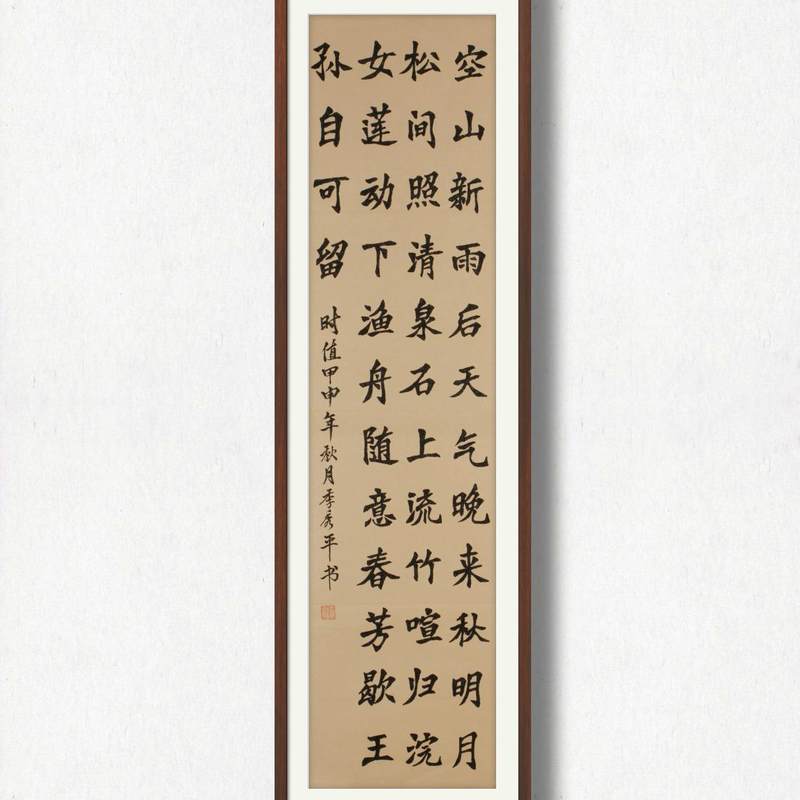 空山新雨后天气晚来秋明月
松间照清泉石上流竹喧归浣
女莲动下渔舟随意春芳歇王
孙自可留
时值甲申年秋月季秀平书